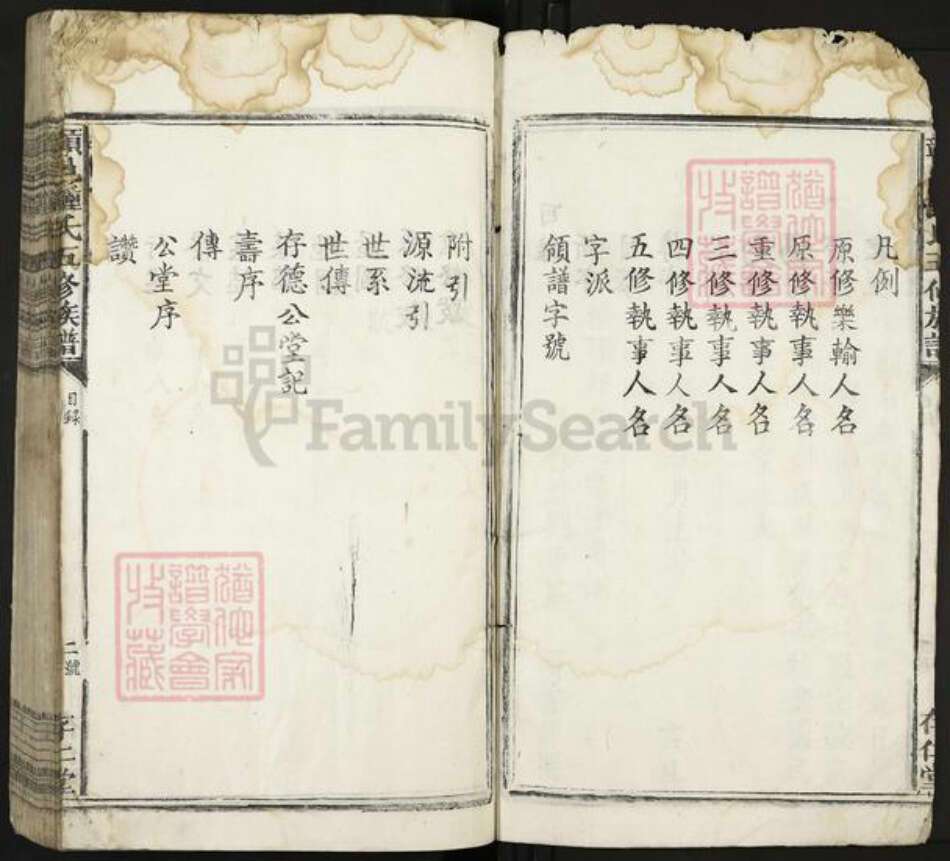 凡例
原修樂輸人名
原修執事人名
重修執事人名
三修執事人名
四修執事人名
五修執事人名
字派
領譜字號
附引
源流引
世系
世傳
存德公堂記
壽序
傳
公堂序
讚
氏五修族譜
目録
二號
存仁堂
存仁堂
FamilySearch